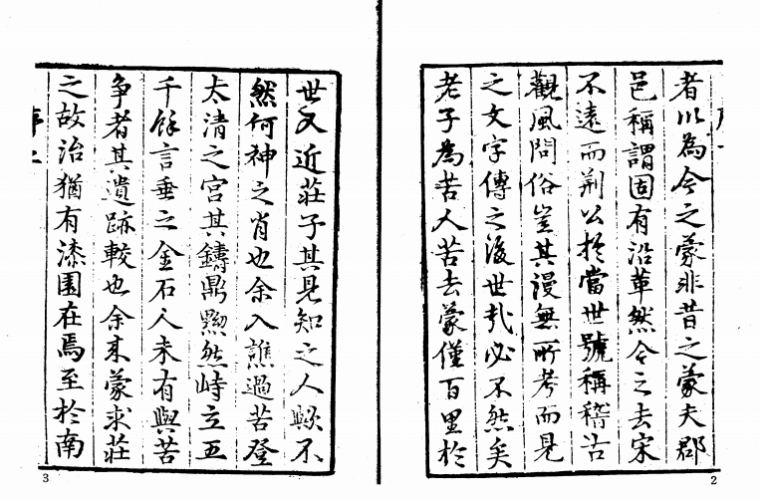 者以為今之蒙非昔之蒙夫郡
邑稱謂固有沿革然今之去宋
不遠而荆公於當世號稱稽古
觀風問俗豈其漫無所考而見
之文字傳之後世哉必不然矣
老子為苦人苦去蒙僅百里於
2
世又近莊子其見知之人歟不
然何神之肖也余入譙過苦登
太清之宮其鑄鼎黝然峙立五
千餘言垂之金石人未有與苦
争者其遺跡較也余來蒙求莊
之故治猶有漆園在焉至於南
3